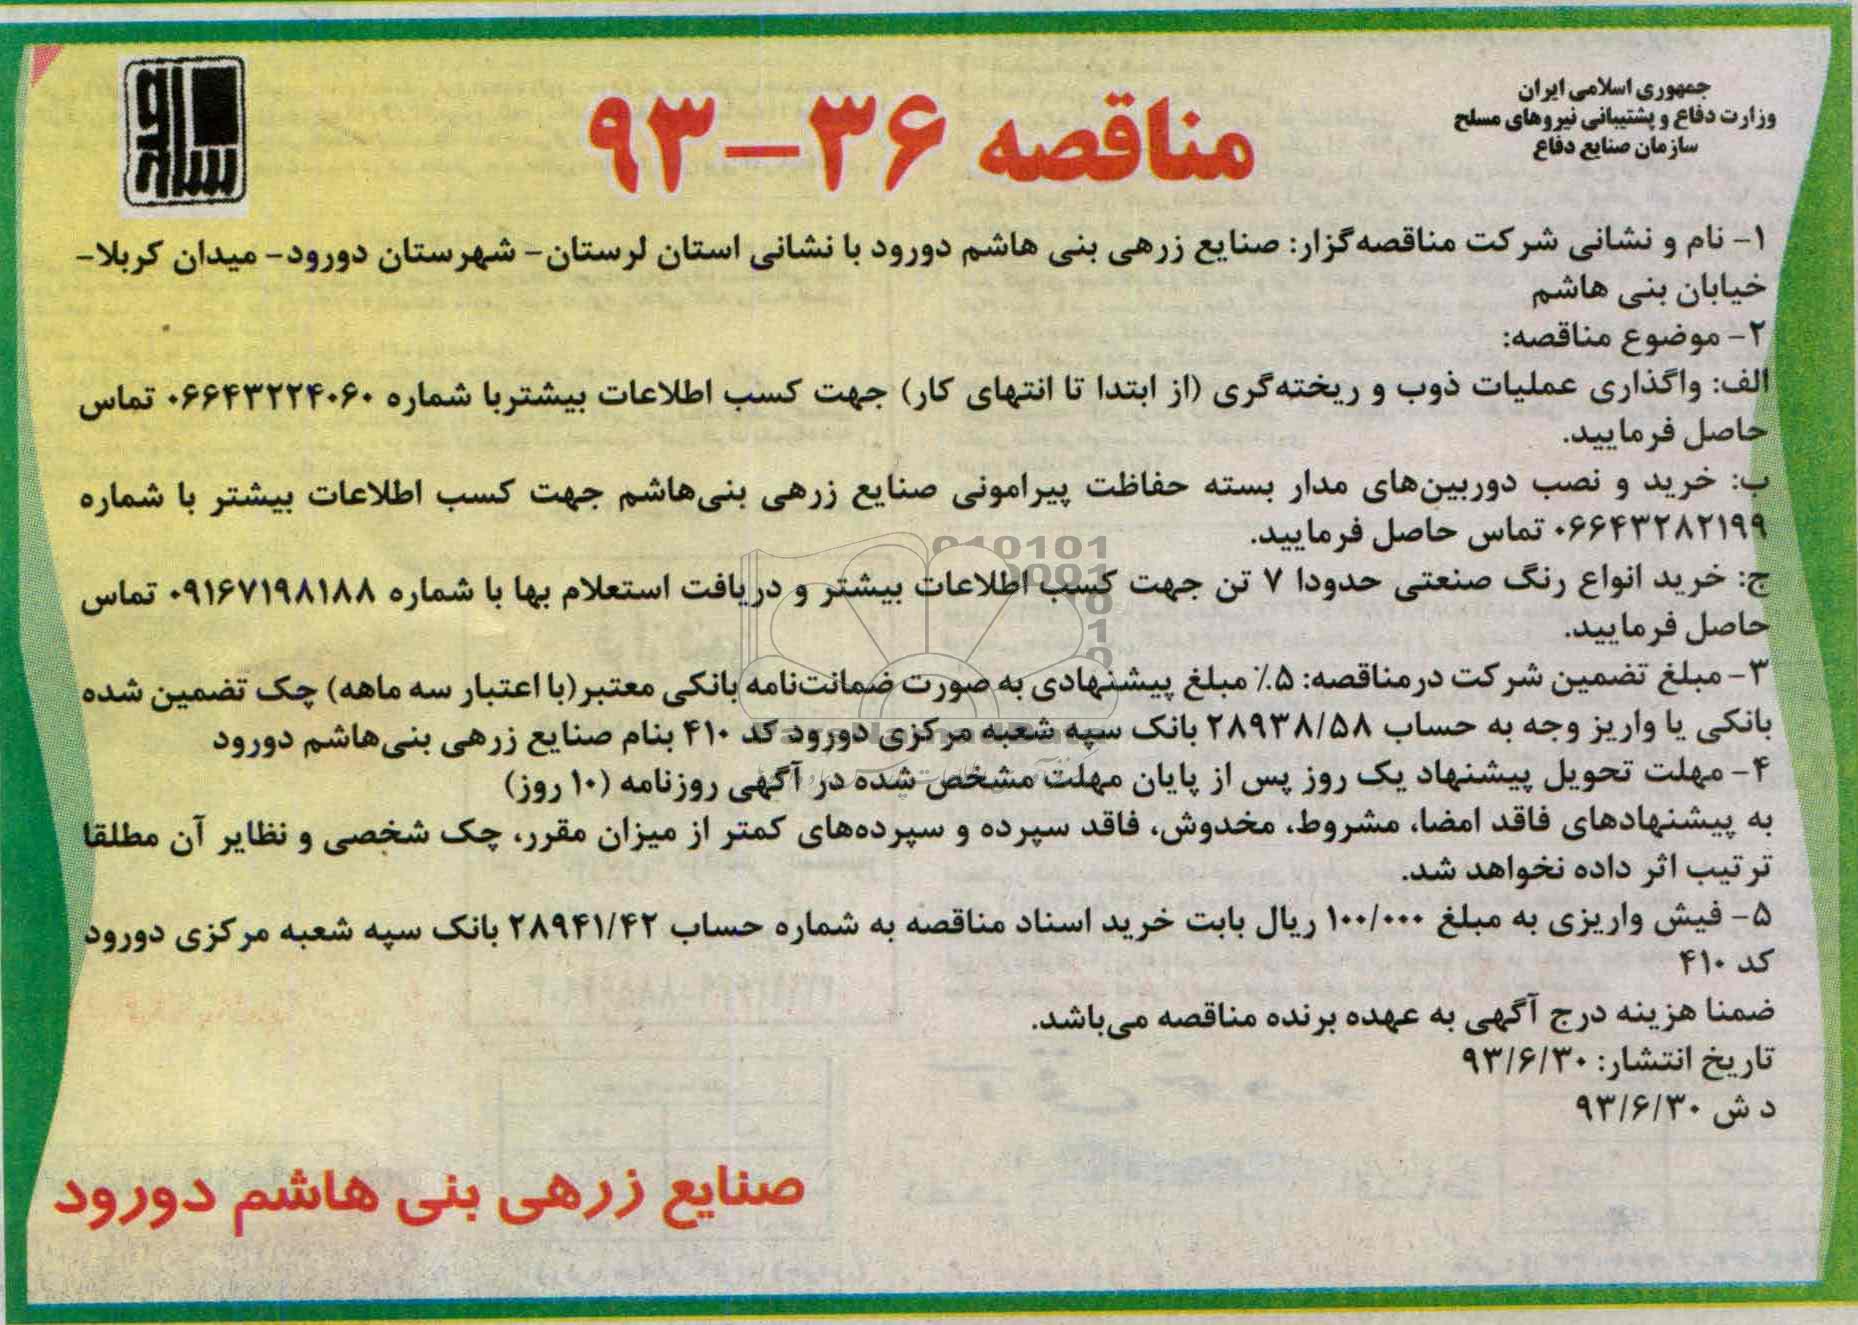 جمهوری اسلامی ایران
وزارت دفاع و پشتیبانی نیروهای مسلح
سازمان صنایع دفاع
مناقصه ۳۶–۹۳
۱- نام و نشانی شرکت مناقصه‌گزار: صنایع زرهی بنی هاشم دورود با نشانی استان لرستان- شهرستان دورود- میدان کربلا-
خیابان بنی هاشم
۲- موضوع مناقصه:
الف: واگذاری عملیات ذوب و ریخته‌گری (از ابتدا تا انتهای کار) جهت کسب اطلاعات بیشتربا شماره ۰۶۶۴۳۲۲۴۰۶۰ تماس
حاصل فرمایید.
ب: خرید و نصب دوربین‌های مدار بسته حفاظت پیرامونی صنایع زرهی بنی‌هاشم جهت کسب اطلاعات بیشتر با شماره
۰۶۶۴۳۲۸۲۱۹۹ تماس حاصل فرمایید.
ج: خرید انواع رنگ صنعتی حدودا ۷ تن جهت کسب اطلاعات بیشتر و دریافت استعلام بها با شماره ۰۹۱۶۷۱۹۸۱۸۸ تماس
حاصل فرمایید.
۳- مبلغ تضمین شرکت درمناقصه: ۵٪ مبلغ پیشنهادی به صورت ضمانت‌نامه بانکی معتبر(با اعتبار سه ماهه) چک تضمین شده
بانکی یا واریز وجه به حساب ۲۸۹۳۸/۵۸ بانک سپه شعبه مرکزی دورود کد ۴۱۰ بنام صنایع زرهی بنی‌هاشم دورود
۴- مهلت تحویل پیشنهاد یک روز پس از پایان مهلت مشخص شده در آگهی روزنامه (۱۰ روز)
به پیشنهادهای فاقد امضا، مشروط، مخدوش، فاقد سپرده و سپرده‌های کمتر از میزان مقرر، چک شخصی و نظایر آن مطلقا
ترتیب اثر داده نخواهد شد.
۵- فیش واریزی به مبلغ ۱۰۰/۰۰۰ ریال بابت خرید اسناد مناقصه به شماره حساب ۲۸۹۴۱/۴۲ بانک سپه شعبه مرکزی دورود
کد ۴۱۰
ضمنا هزینه درج آگهی به عهده برنده مناقصه می‌باشد.
تاریخ انتشار: ۹۳/۶/۳۰
د ش ۹۳/۶/۳۰
صنایع زرهی بنی هاشم دورود